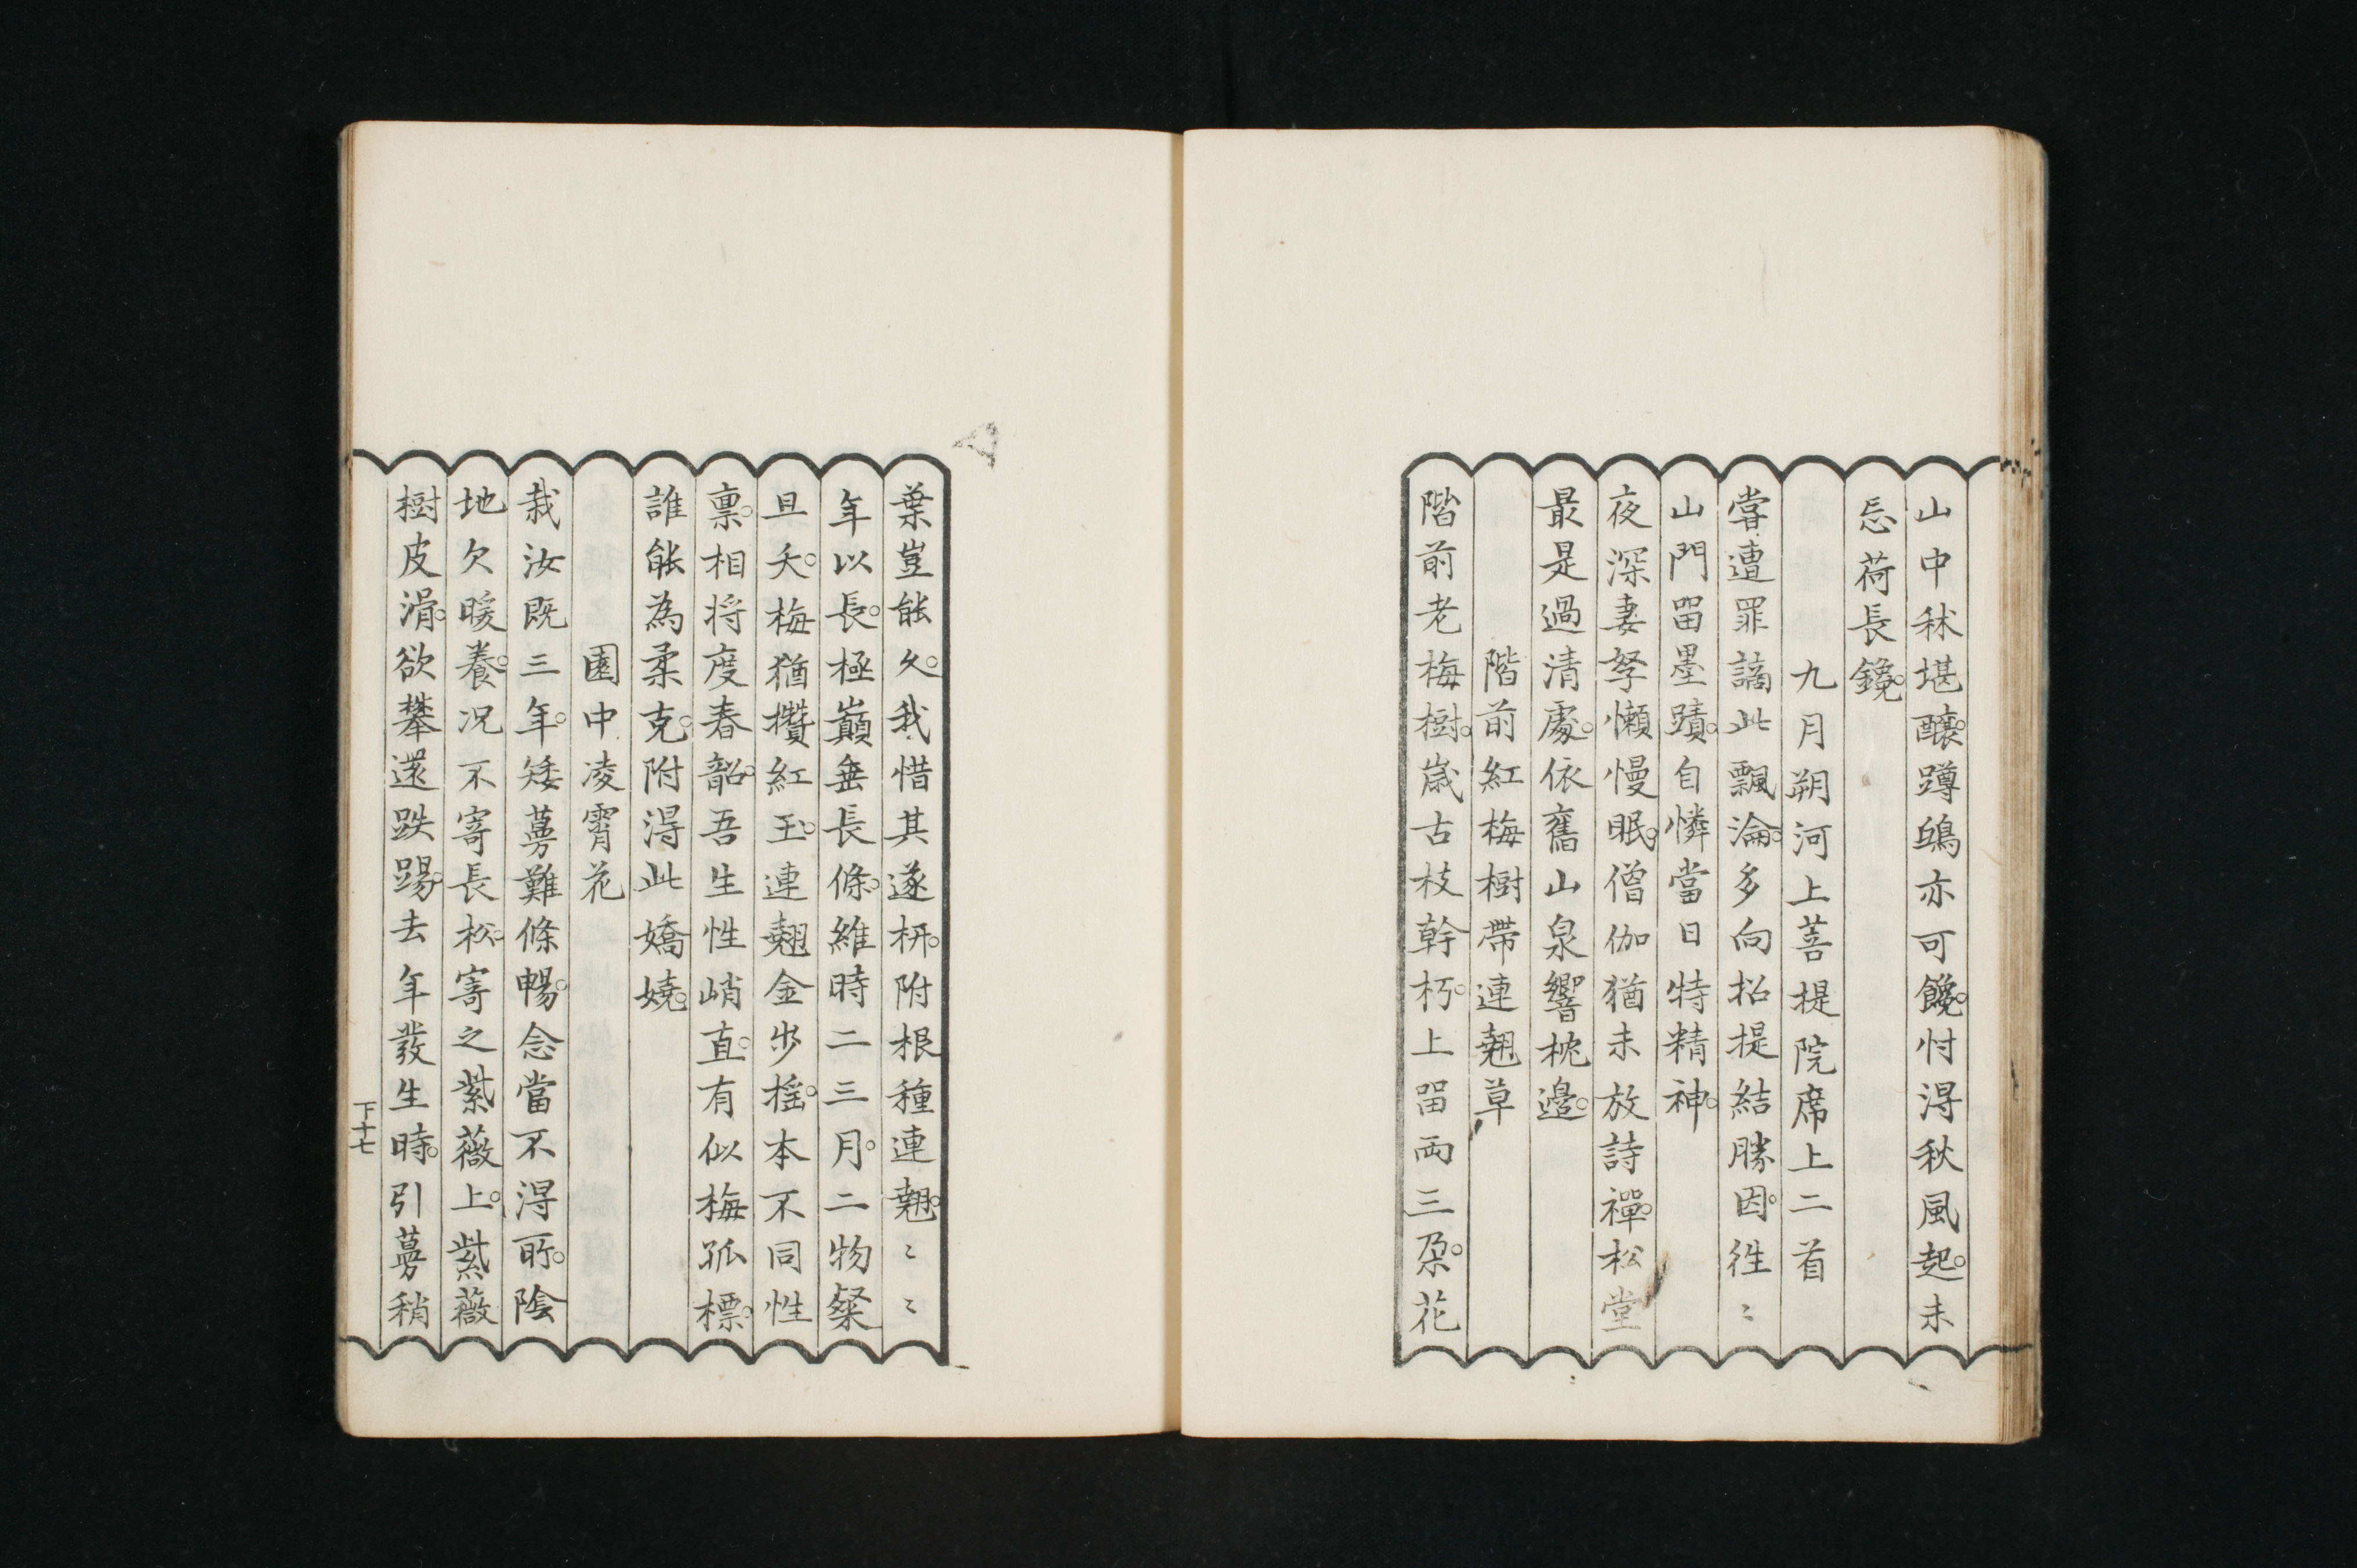 山中秫堪釀。蹲鴟亦可饞。忖得秋風起。未
忘荷長鑱。
九月朔河上菩提院席上二首
嘗遭罪謫此飄淪。多向招提結勝因。徃〻
山門畱墨蹟。自憐當日特精神。
夜深妻孥懶慢眠。僧伽猶未放詩禪。松堂
最是過清處。依舊山泉響枕邊。
階前紅梅樹帶連翹草
階前老梅樹。歲古枝幹朽。上畱両三朶。花
葉豈能久。我惜其遂枅。附根種連翹。〻〻
年以長。極巔垂長條。維時二三月。二物粲
且夭。梅猶攢紅玉。連翹金步搖。本不同性
禀。相将度春韶。吾生性峭直。有似梅孤標。
誰能為柔克。附得此嬌嬈。
園中凌霄花
栽汝既三年。矮蔓難條暢。念當不得所。陰
地欠暖養。况不寄長松。寄之紫薇上。紫薇
樹皮滑。欲攀還跌踢。去年發生時。引蔓稍
下十七